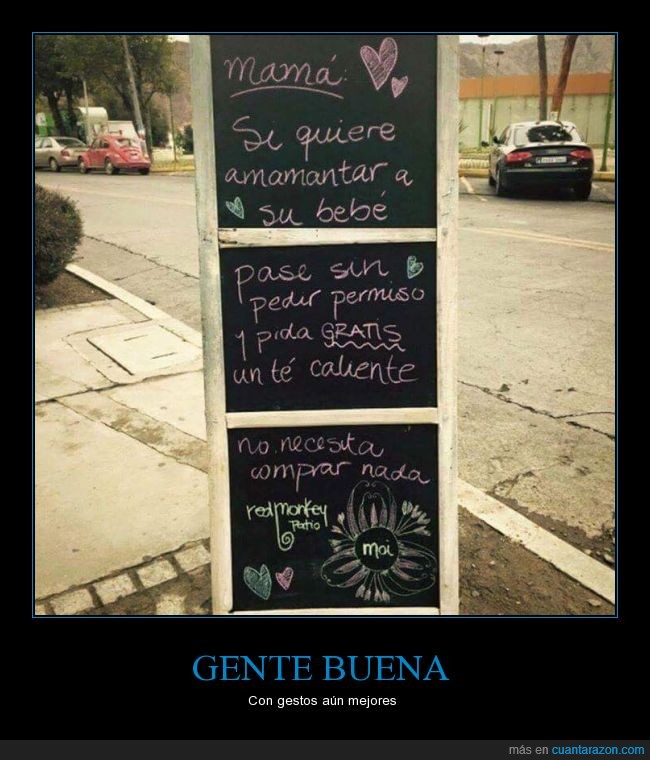 mamá:
Si quiere
amamantar a
su bebé
pase sin
pedir permiso
y pida GRATIS
un té caliente
no necesita
comprar nada
redmonkey
Patio
moi
GENTE BUENA
Con gestos aún mejores
más en cuantarazon.com